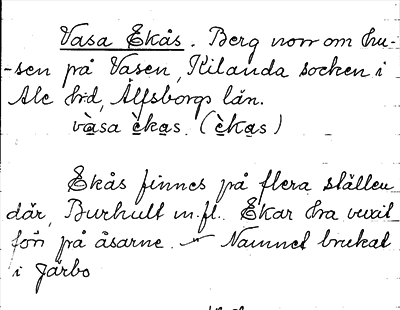 Vasa Ekås. Berg norr om hu-
-sen på Vasen, Kilanda socken i
Ale hrd, Älfsborgs län.
vàsa èkas. (èkas)
Ekås finnes på flera ställen
där, Burhult m.fl. Ekar ha vuxit
förr på åsarne. Namnet brukat
i Järbo